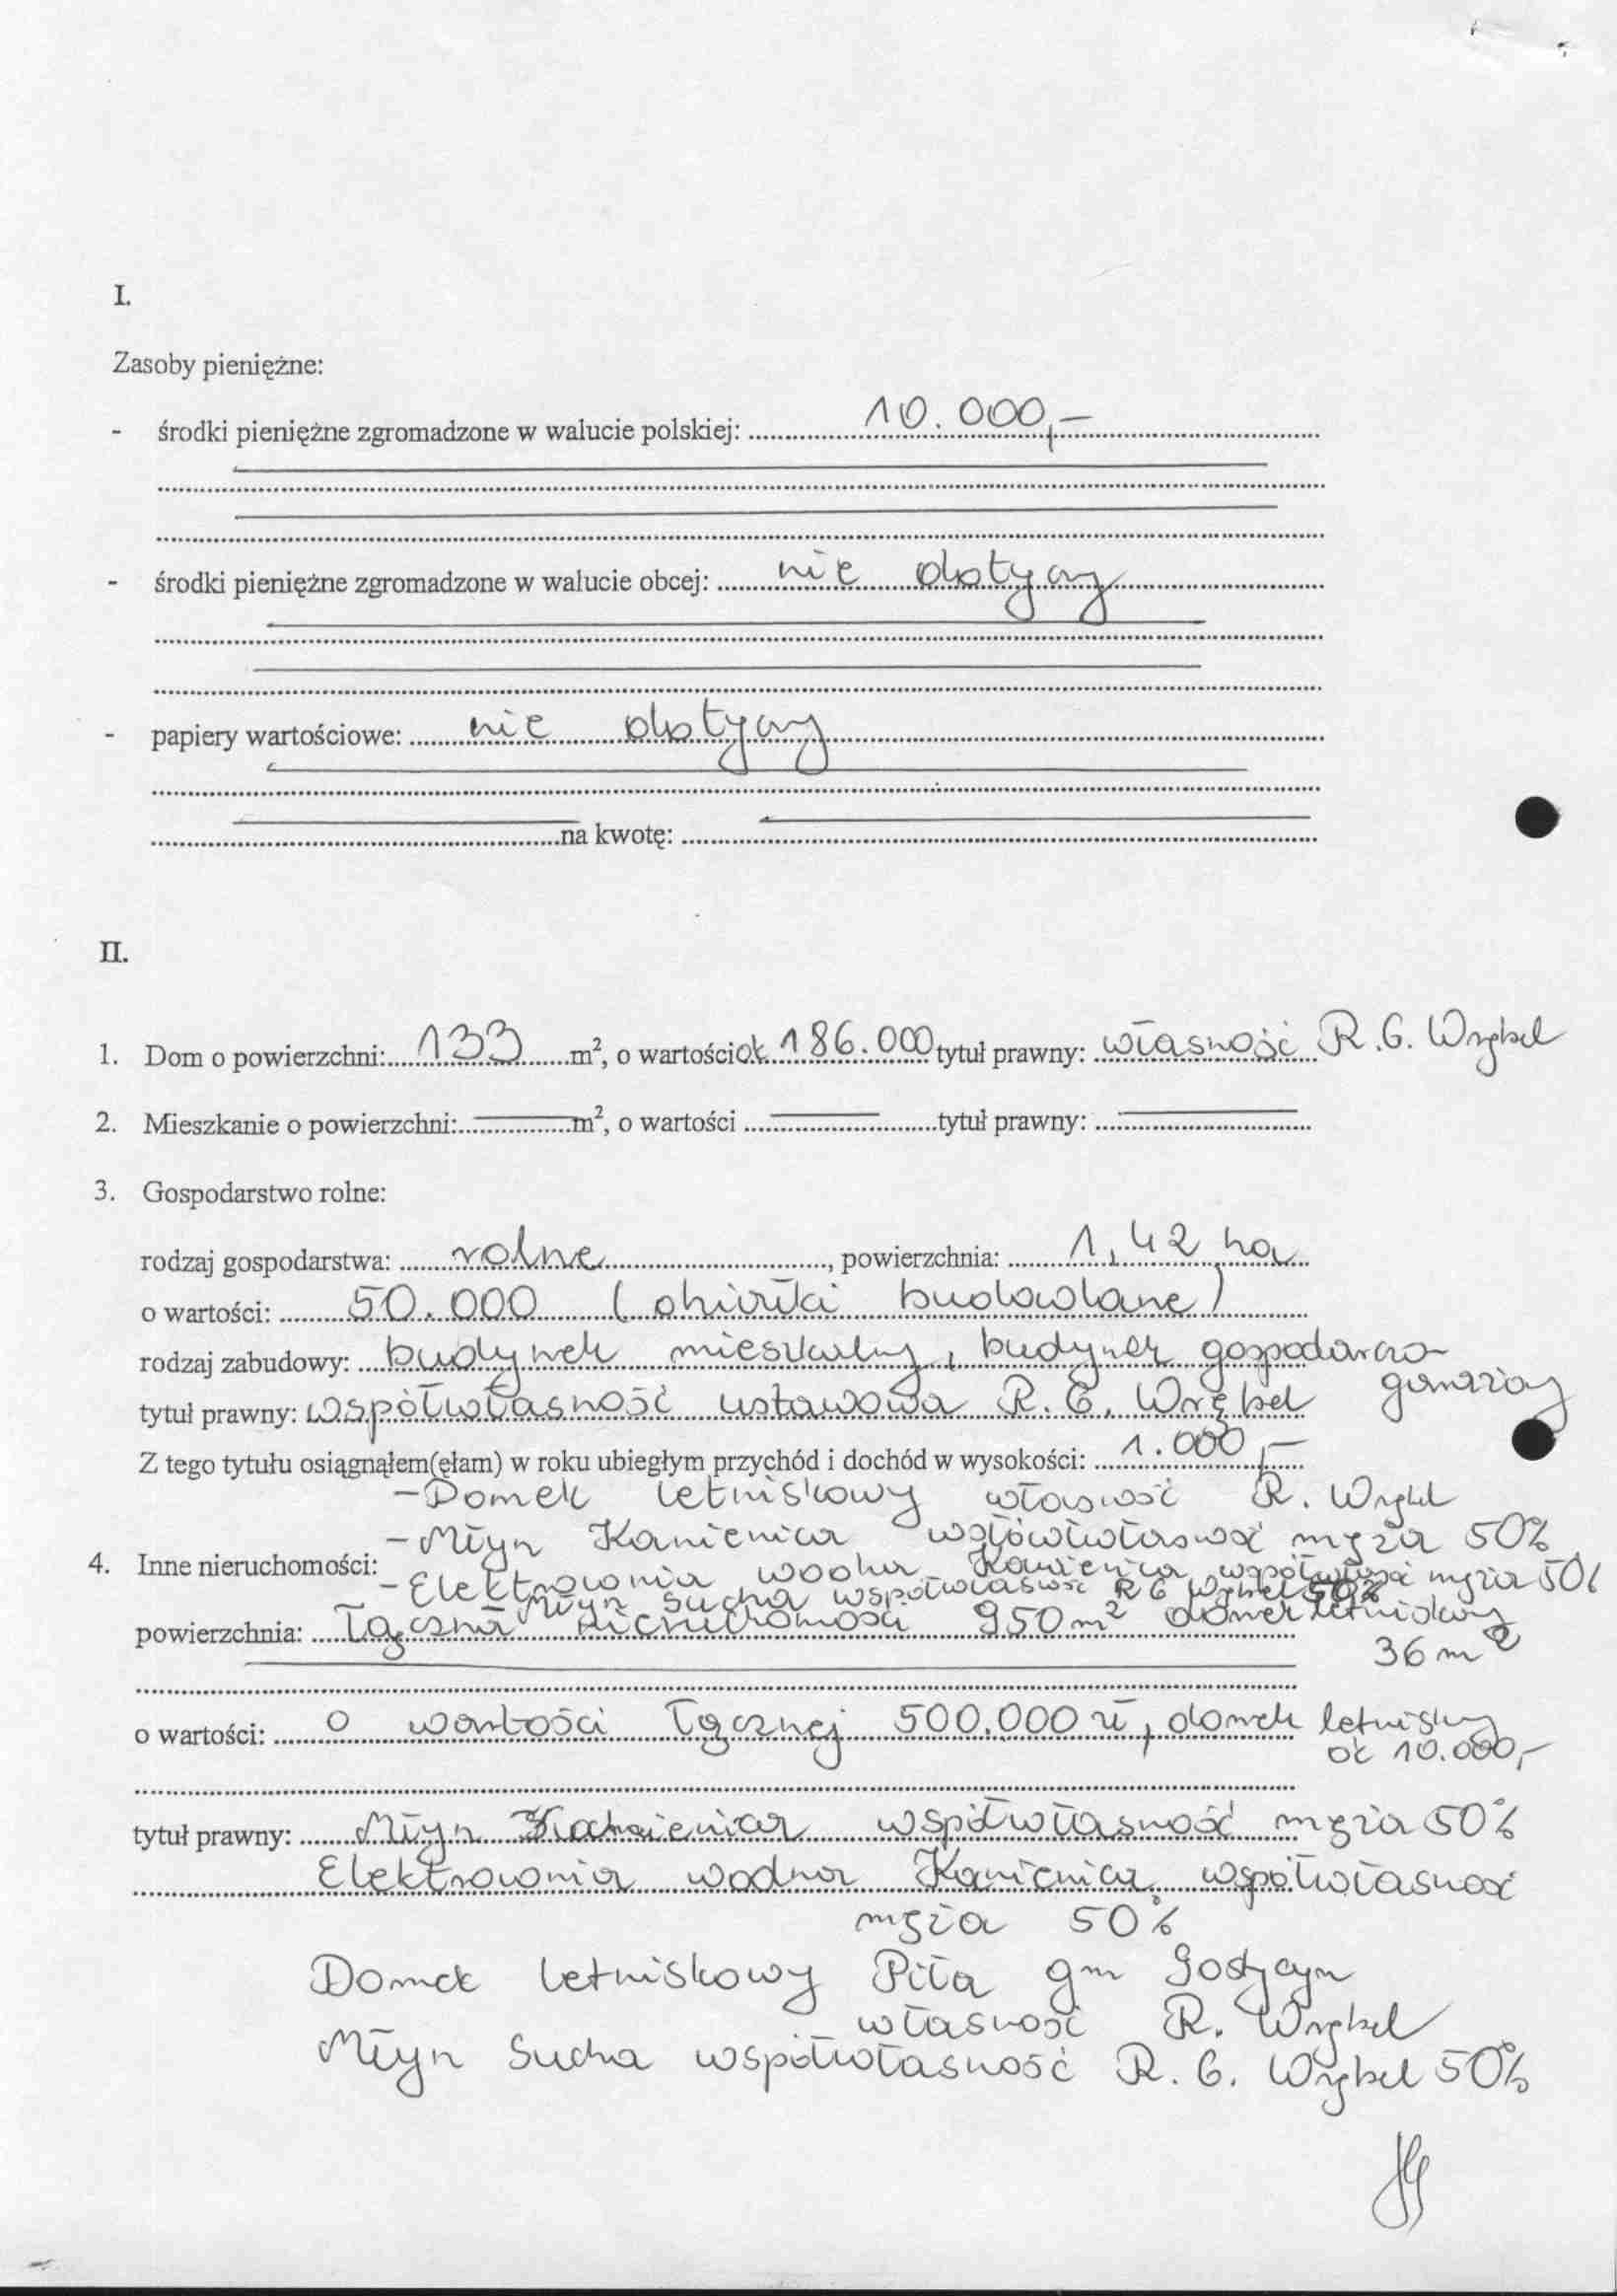 I.
Zasoby pieniężne:
- środki pieniężne zgromadzone w walucie polskiej: 10.000,-
- środki pieniężne zgromadzone w walucie obcej: nie dotyczy
- papiery wartościowe: nie dotyczy
na kwotę:
II.
1. Dom o powierzchni: 133 m², o wartości ok 186.000 tytuł prawny: własność R.G. Wrębel
2. Mieszkanie o powierzchni: m², o wartości tytuł prawny:
3. Gospodarstwo rolne:
rodzaj gospodarstwa: rolne, powierzchnia: 1,42 ha
o wartości: 50.000 (działki budowlane)
rodzaj zabudowy: budynek mieszkalny, budynek gospodarczo-
garażowy
tytuł prawny: współwłasność ustawowa R.G. Wrębel
Z tego tytułu osiągnąłem(ęłam) w roku ubiegłym przychód i dochód w wysokości: 1.000,-
- Domek letniskowy własność R. Wrębel
- Młyn Kamienica współwłasność męża 50%
4. Inne nieruchomości:
- Elektrownia wodna Kamienica współwłasność męża 50%
Młyn Sucha współwłasność R G Wrębel 50%
powierzchnia: Łączna nieruchomości 950 m² domek letniskowy
36 m²
o wartości: o wartości łącznej 500.000 zł, domek letniskowy
ok 10.000,-
tytuł prawny: Młyn Kamienica współwłasność męża 50%
Elektrownia wodna Kamienica współwłasność
męża 50%
Domek letniskowy Piła gm Gostycyn
własność R. Wrębel
Młyn Sucha współwłasność R. G. Wrębel 50%